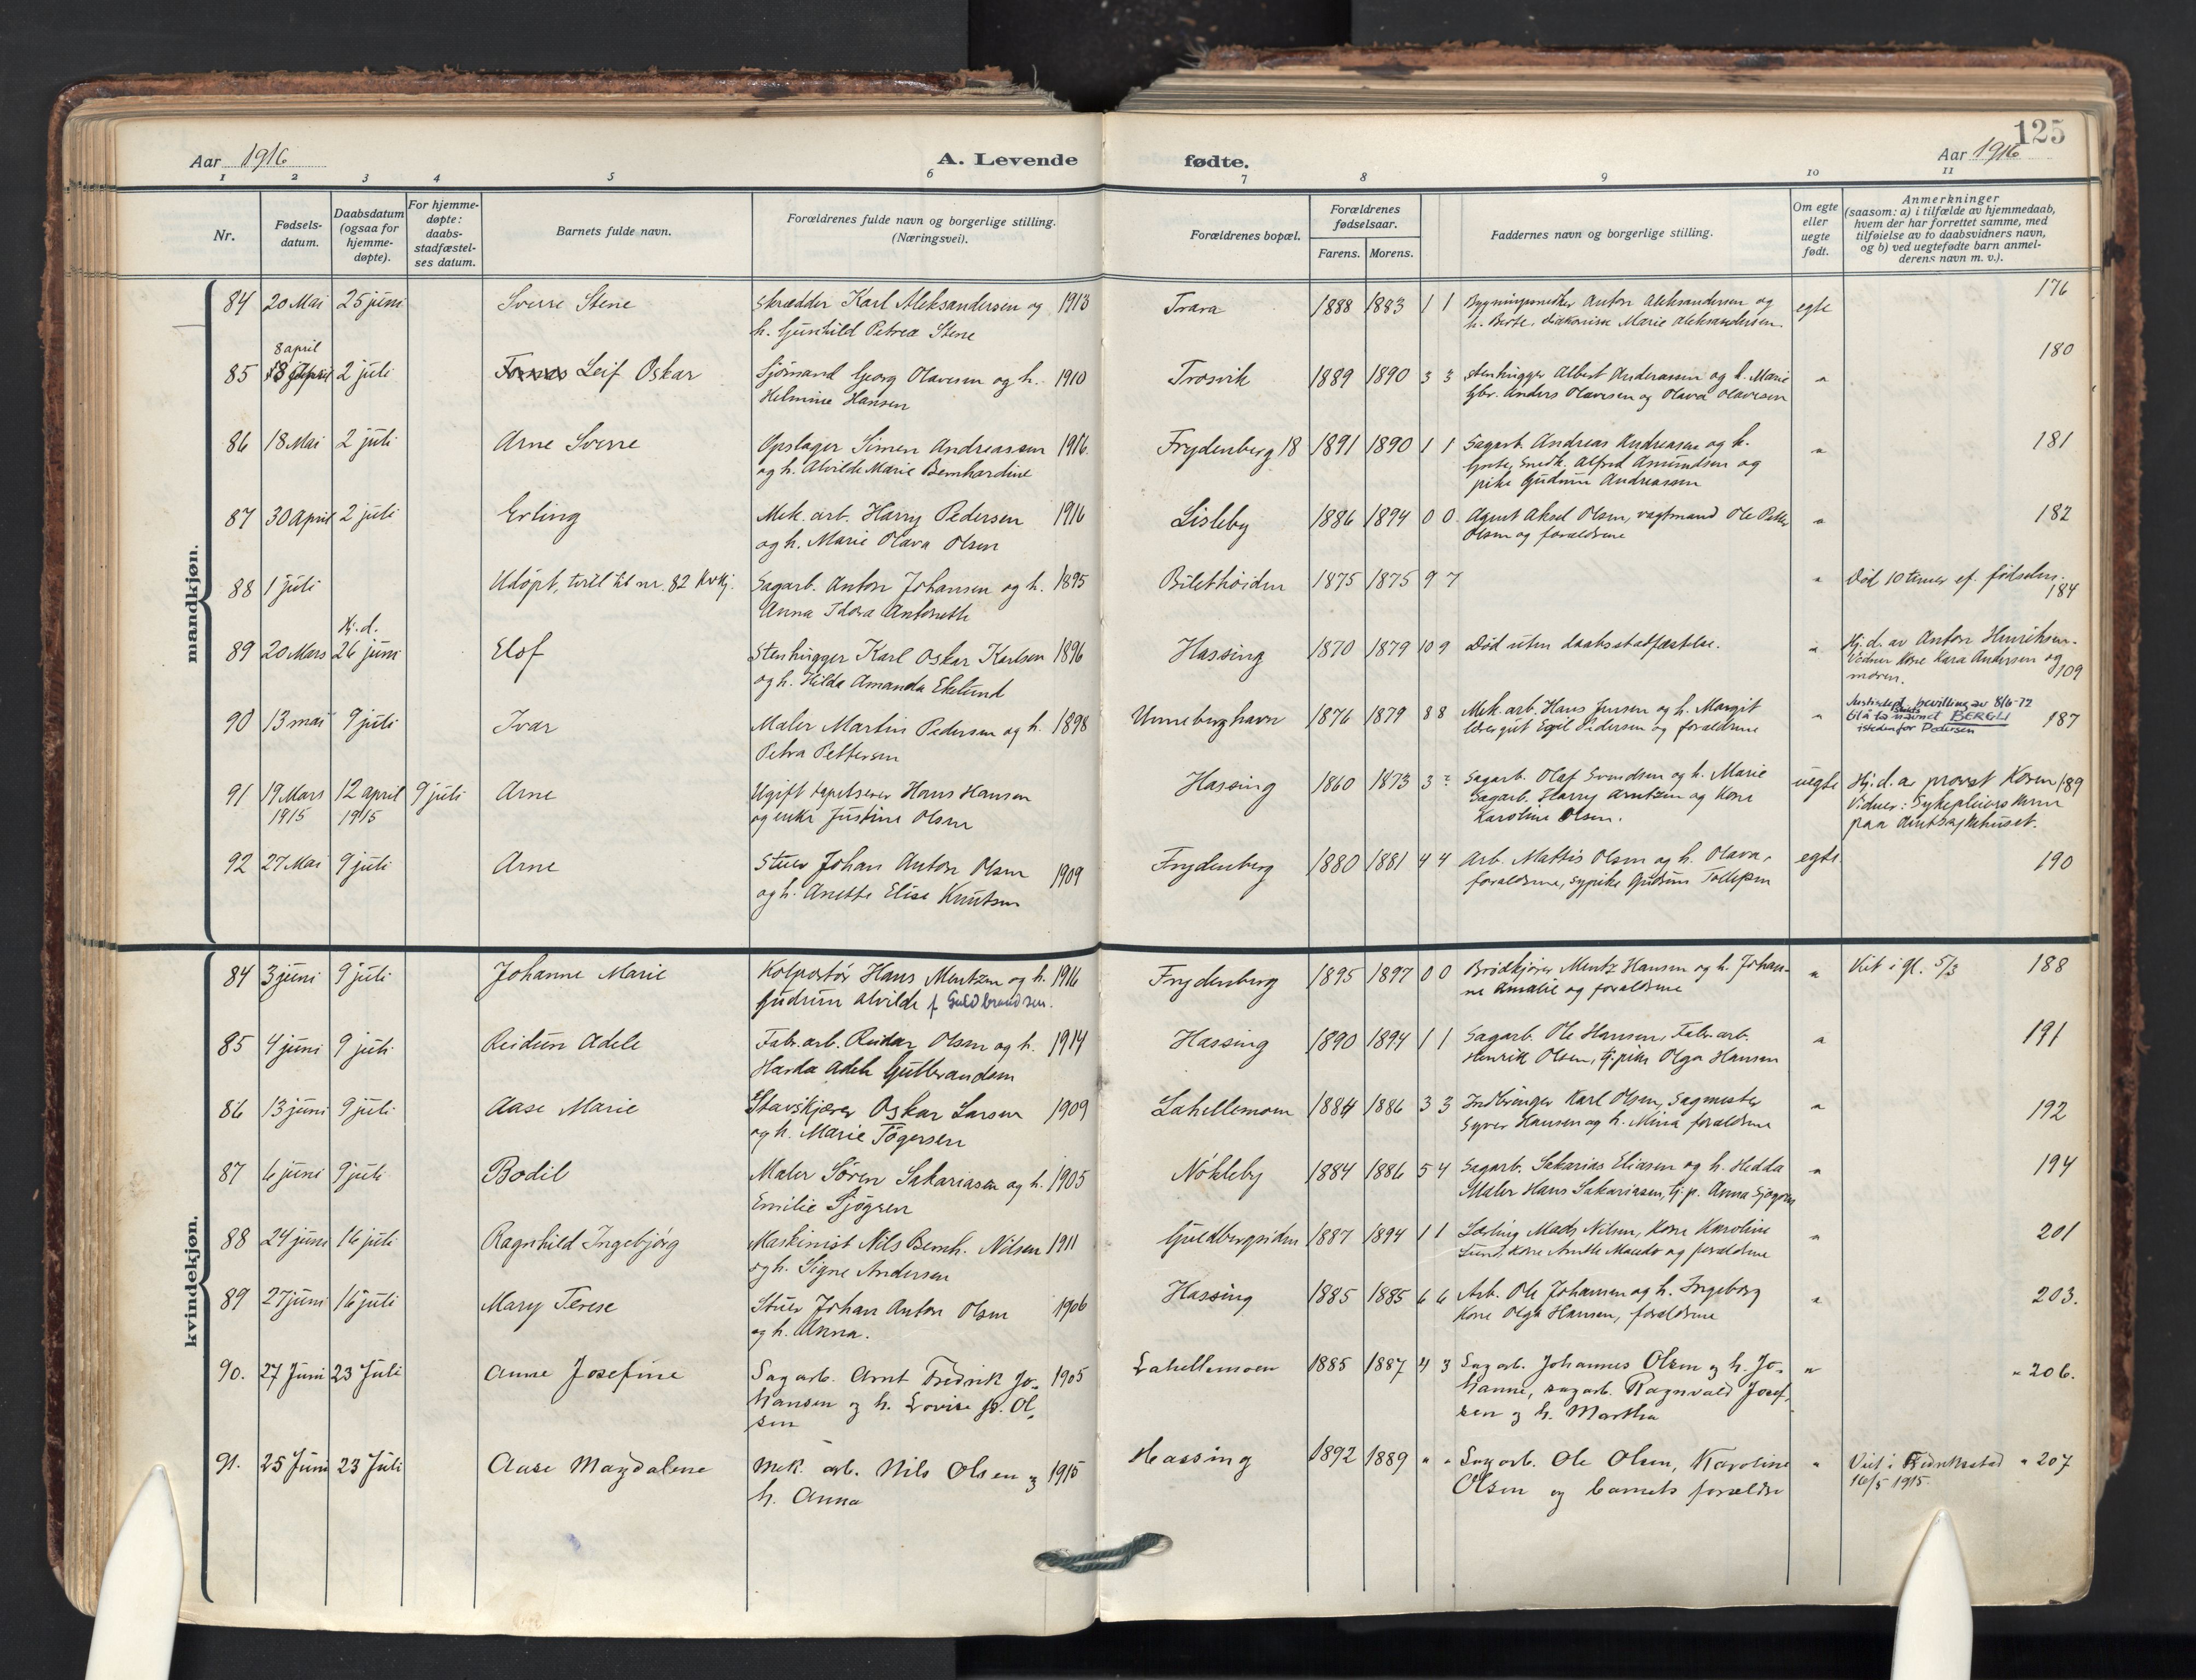 125
Aar 1916
A. Levende
fødte.
Aar 1916
1 2 3 4 5 6 7 8 9 10 11
Nr.
Fødsels-
datum.
Daabsdatum
(ogsaa for
hjemme-
døpte).
For hjemme-
døpte:
daabs-
stadfæstel-
ses datum.
Barnets fulde navn.
Forældrenes fulde navn og borgerlige stilling.
(Næringsvei).
Forældrenes bopæl.
Forældrenes
fødselsaar.
Farens. Morens.
Faddernes navn og borgerlige stilling.
Om egte
eller
uegte
født.
Anmerkninger
(saasom: a) i tilfælde av hjemmedaab,
hvem der har forrettet samme, med
tilføielse av to daabsvidners navn,
og b) ved uegtefødte barn anmel-
derens navn m. v.).
mandkjøn.
84 20 Mai 25 juni Sverre Stene Skrædder Karl Aleksandersen og 1913 Trara 1888 1883 1 1 Bygningssnedker Anton Aleksandersen og egte 176
h. Gunhild Petrea Stene h. Berte, diakonisse Marie Aleksandersen.
8 april
85 2 juli Leif Oskar Sjømand Georg Olavesen og h. 1910 Trosvik 1889 1890 3 3 Stenhugger Albert Andreassen og h. Marie " 180
Helmine Hansen Gbr. Anders Olavesen og Olava Olavesen
86 18 Mai 2 juli Arne Sverre Opslager Simen Andreassen 1916. Frydenberg 18 1891 1890 1 1 Sagarb. Andreas Andreassen og h. " 181
og h. Alvilde Marie Bernhardine Snedk. Alfred Amundsen og
pike Gudrun Andreassen
87 30 April 2 juli Erling Mek. arb. Harry Pedersen 1916 Lisleby 1886 1894 0 0 Agent Aksel Olsen, vagtmand Ole Petter " 182
og h. Marie Olava Olsen Olsen og forældrene
88 1 juli Udøpt, tvill. til nr. 82 kvkj. Sagarb. Anton Johansen og h. 1895 Bilethöiden 1875 1875 9 7 " Död 10 timer ef. fødselen.
Anna Idora Antonette 184
Hj. d.
89 20 Mars 26 juni Elof Stenhugger Karl Oskar Karlsen 1896 Hassing 1870 1879 10 9 Död uten daabsstadfæstelse. " Hj. d. av Anton Henriksen.
og h. Hilda Amanda Ekelund Vidner Kone Kara Andersen og
moren. 109
90 13 mai 9 juli Ivar Maler Martin Pedersen og h. 1898 Unneberghavn 1876 1879 8 8 Mek. arb. Hans Jensen og h. Margit " Justisdept. bevilling av 8/6-72
Petra Pettersen Egil Pedersen og forældrene til å ta navnet BERGLI 187
istedenfor Pedersen
91 19 Mars 12 april 9 juli Arne Ugift tapetserer Hans Hansen Hassing 1860 1873 3 2 Sagarb. Olaf Svendsen og h. Marie uegte Hj. d. av provst Koren 189
1915 1915 og enke Justine Olsen Sagarb. Harry Arntzen og Kone Vidner:
Karoline Olsen. paa Amtssykehuset.
92 27 Mai 9 juli Arne Stuer Johan Anton Olsen 1909 Frydenberg 1880 1881 4 4 Arb. Mattis Olsen og h. Olava, egte. 190
og h. Anette Elise Knutsen forældrene, sypike Gudrun Tollefsen
kvindekjøn.
84 3 juni 9 juli Johanne Marie Kolportör Hans Mentzen og h. 1916 Frydenberg 1895 1897 0 0 Brödkjörer Mentz Hansen og h. Johan- " Viet i Gl. 5/3 188
Gudrun Alvilde f Guldbrandsen. ne Amalie og forældrene
85 4 juni 9 juli Reidun Adele Fabr. arb. Reidar Olsen og h. 1914 Hassing 1890 1894 1 1 Sagarb. Ole Hansen, Fabr. arb. " 191
Harda Adele Gulbrandsen Henrik Olsen, tj. pike Olga Hansen
86 13 juni 9 juli Aase Marie Stavskjærer Oskar Larsen 1909 Lahellemoen 1884 1886 3 3 Indbringer Karl Olsen, Sagmester " 192
og h. Marie Tögersen Syver Hansen og h. Mina forældrene
87 6 juni 9 juli Bodil Maler Sören Sakariasen og h. 1905 Nökleby 1884 1886 5 4 Sagarb. Sakarias Eliasen og h. Hedda " 194
Emilie Sjögren Maler Hans Sakariasen, tj. p. Anna Sjögren
88 24 juni 16 juli Ragnhild Ingebjörg Maskinist Nils Bernh. Nilsen 1911 Guldbergsiden 1887 1894 1 1 Lærling Mads Nilsen, Kone Karoline " 201
og h. Signe Andersen Lund, Kone og forældrene
89 27 juni 16 juli Mary Terese Stuer Johan Anton Olsen 1906 Hassing 1885 1885 6 6 Arb. Ole Johansen og h. Ingeborg " 203.
og h. Anna. Kone Olga Hansen, forældrene
90. 27 Juni 23 Juli Anne Josefine Sagarb. Arnt Fredrik Jo- 1905 Lahellemoen 1885 1887 4 3 Sagarb. Johannes Olsen og h. Jo- " " 206.
hansen og h. Lovise f. Ol- hanne, sagarb. Ragnvald Josef-
sen sen og h. Martha
91. 25 Juni 23 Juli Aase Magdalene Mek. arb. Nils Olsen og 1915 Hassing 1892 1889 " " Sagarb. Ole Olsen, Karoline " Viet i Fredrikstad " 207
h. Anna Olsen og barnets forældre 16/5 1915.